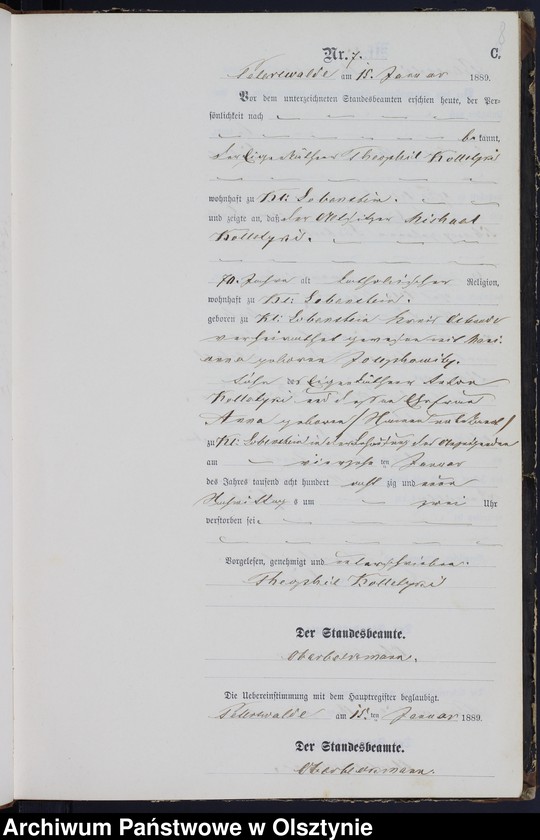 Nr. 7. C.
Peterswalde am 15. Januar 1889.
Vor dem unterzeichneten Standesbeamten erschien heute, der Per-
sönlichkeit nach
bekannt,
der Eigenkäthner Theophil
wohnhaft zu Kl: Lobenstein.
und zeigte an, daß der Altsitzer Michael
70. Jahre alt katholischer Religion,
wohnhaft zu Kl: Lobenstein.
geboren zu Kl: Lobenstein Kreis
verheirathet gewesen mit Mari-
anna geborene
Sohn des Eigenkäthner Anton
und dessen Ehefrau
Anna geborene /Namen unbekannt/
zu Kl: Lobenstein in der Behausung des Anzeigenden
am vierzehn ten Januar
des Jahres tausend acht hundert acht zig und neun
Nachmittags um zwei Uhr
verstorben sei.
Vorgelesen, genehmigt und unterschrieben.
Theophil
Der Standesbeamte.
Die Uebereinstimmung mit dem Hauptregister beglaubigt.
Peterswalde am 15. ten Januar 1889.
Der Standesbeamte.
Archiwum Państwowe w Olsztynie